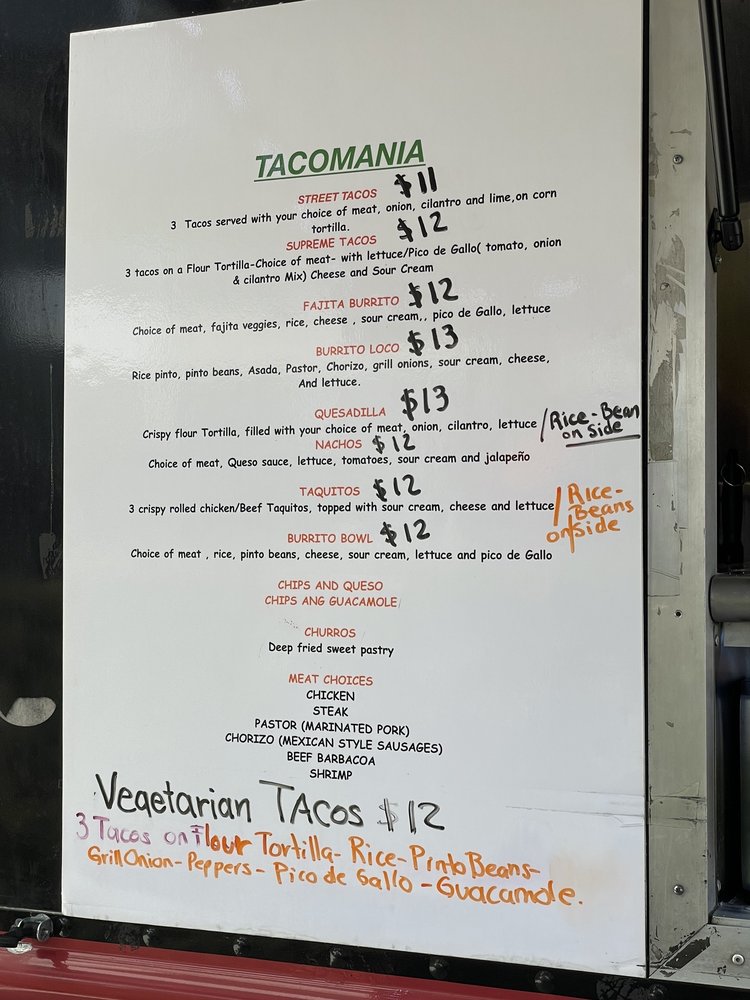 TACOMANIA
STREET TACOS $11
3 Tacos served with your choice of meat, onion, cilantro and lime,on corn
tortilla.
SUPREME TACOS $12
3 tacos on a Flour Tortilla-Choice of meat- with lettuce/Pico de Gallo( tomato, onion
& cilantro Mix) Cheese and Sour Cream
FAJITA BURRITO $12
Choice of meat, fajita veggies, rice, cheese , sour cream,, pico de Gallo, lettuce
BURRITO LOCO $13
Rice pinto, pinto beans, Asada, Pastor, Chorizo, grill onions, sour cream, cheese,
And lettuce.
QUESADILLA $13
Crispy flour Tortilla, filled with your choice of meat, onion, cilantro, lettuce /Rice-Bean
on Side
NACHOS $12
Choice of meat, Queso sauce, lettuce, tomatoes, sour cream and jalapeño
TAQUITOS $12
3 crispy rolled chicken/Beef Taquitos, topped with sour cream, cheese and lettuce /Rice-
Beans
on Side
BURRITO BOWL $12
Choice of meat , rice, pinto beans, cheese, sour cream, lettuce and pico de Gallo
CHIPS AND QUESO
CHIPS ANG GUACAMOLE
CHURROS
Deep fried sweet pastry
MEAT CHOICES
CHICKEN
STEAK
PASTOR (MARINATED PORK)
CHORIZO (MEXICAN STYLE SAUSAGES)
BEEF BARBACOA
SHRIMP
Vegetarian TACOS $12
3 Tacos on Flour Tortilla- Rice-Pinto Beans-
Grill Onion- Peppers- Pico de Gallo -Guacamole.